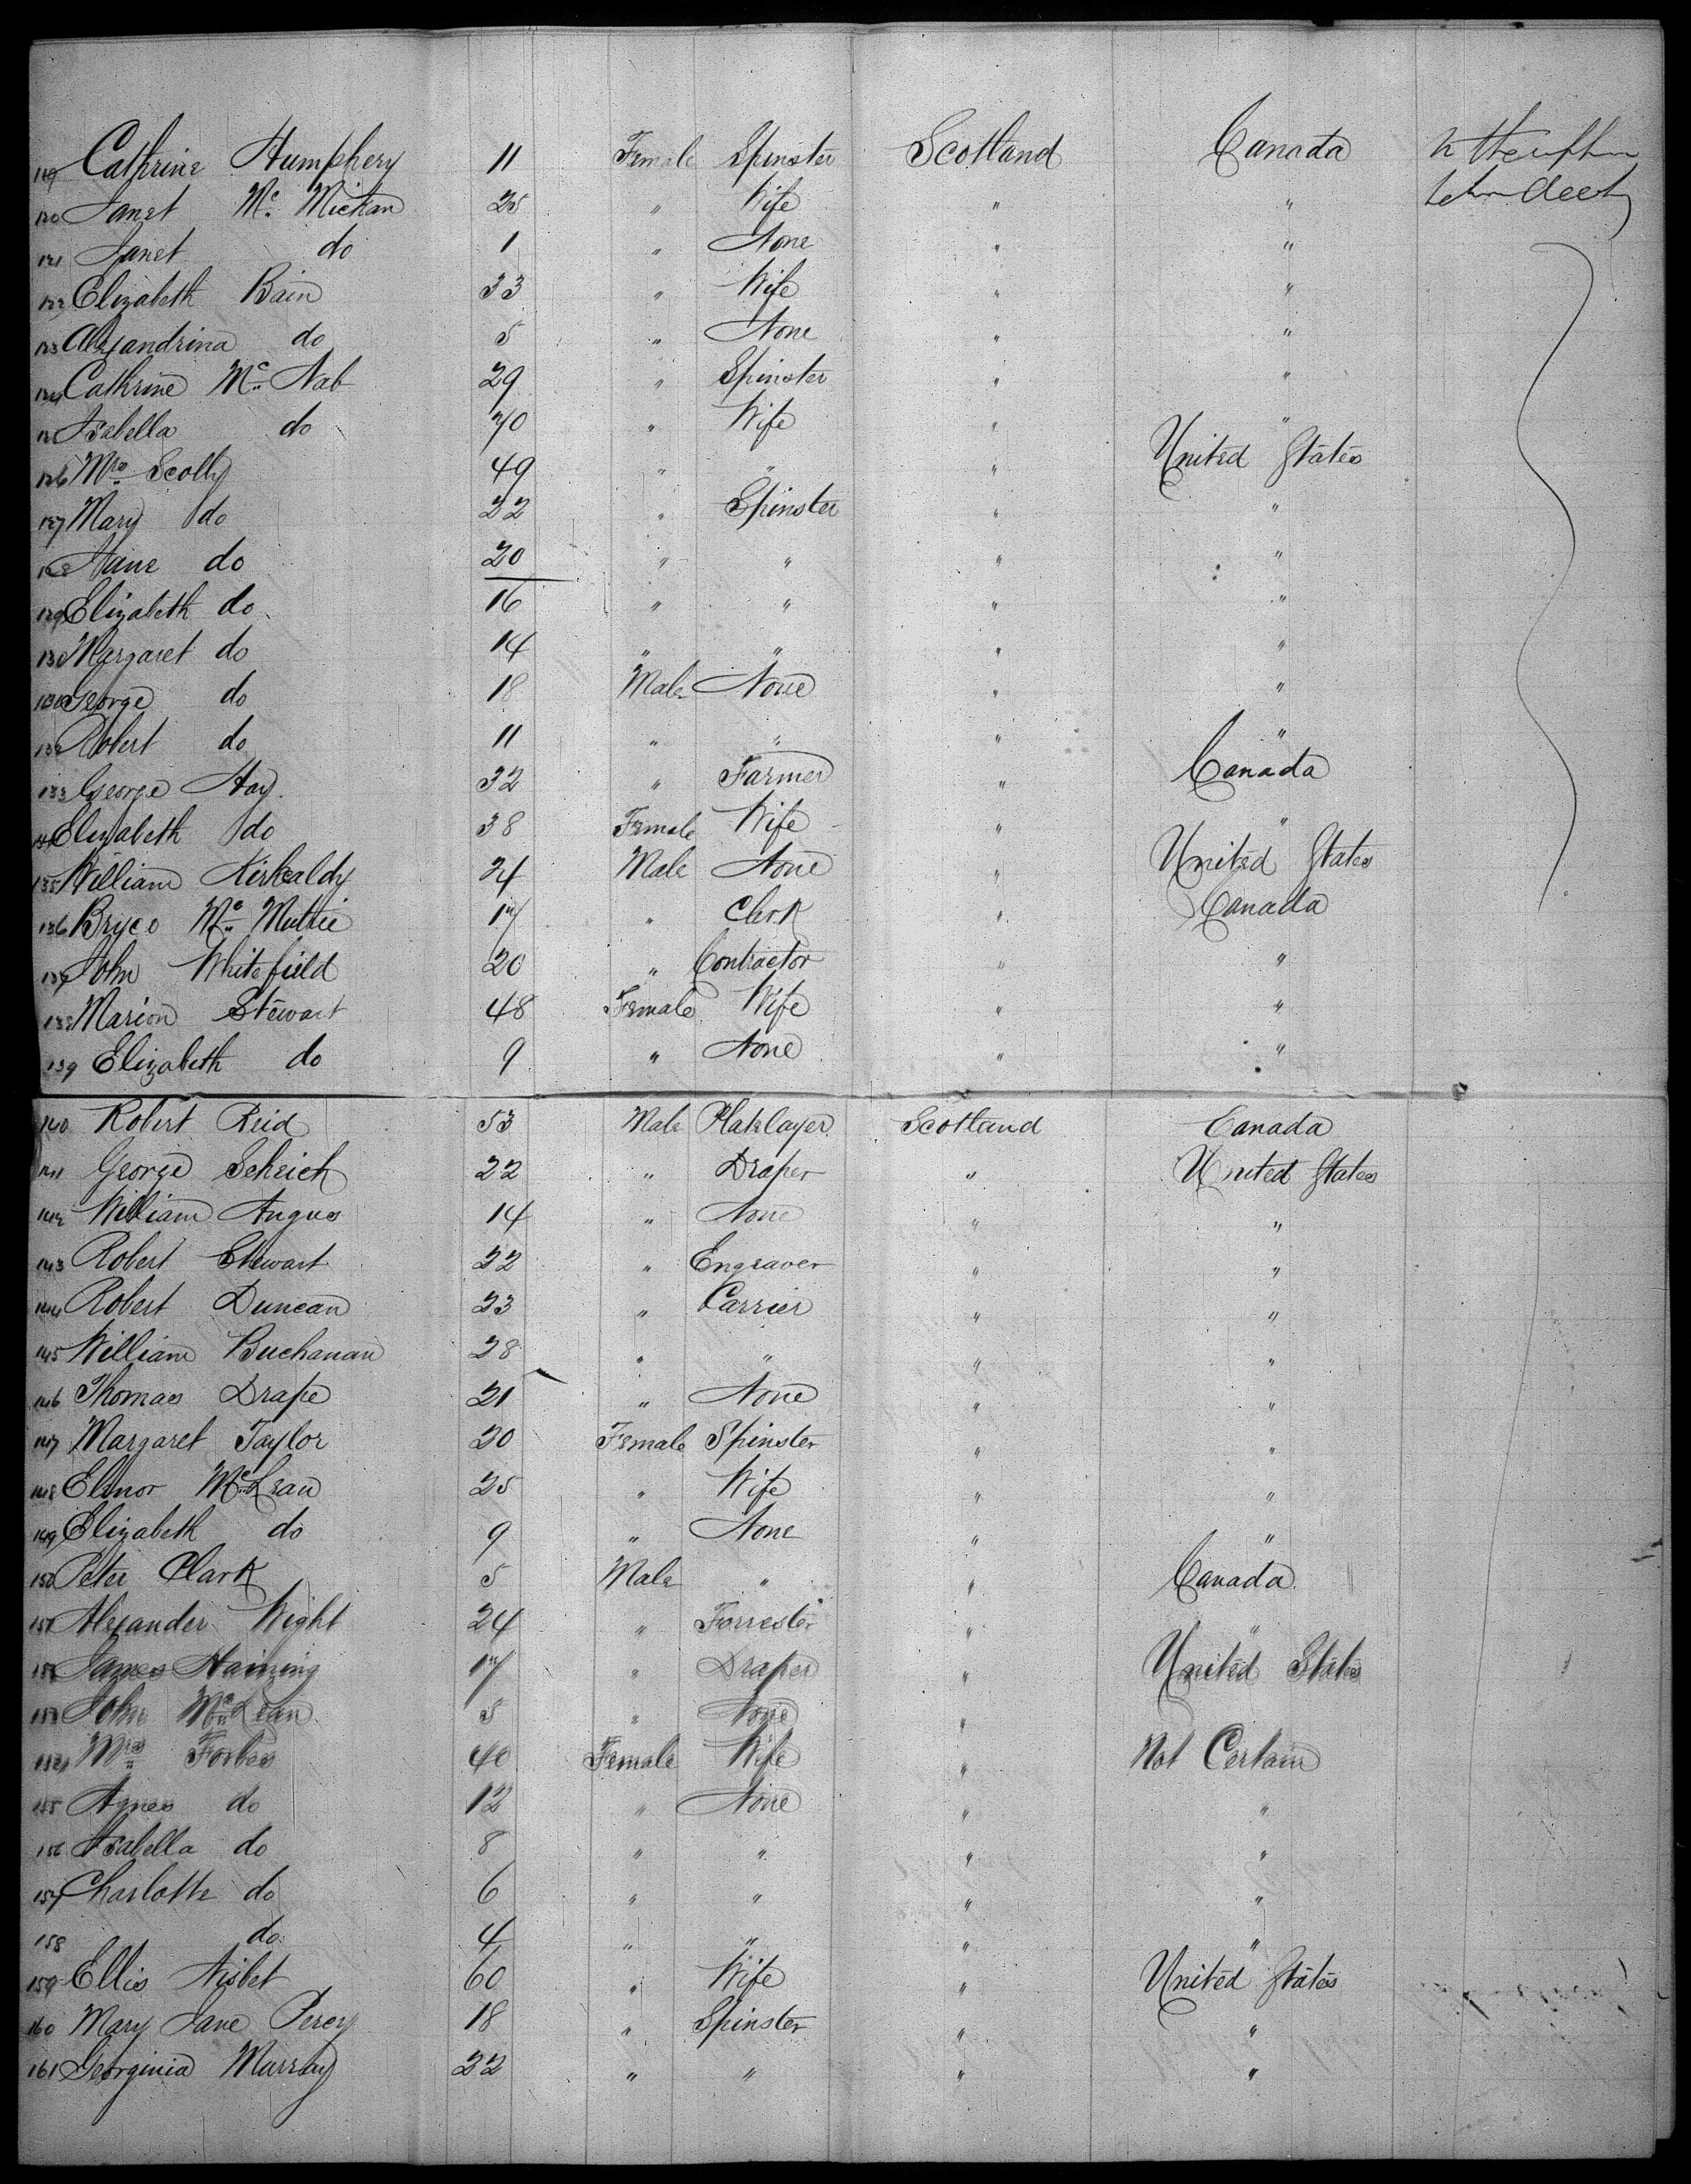 119 Cathrine Humphery 11 Female Spinster Scotland Canada
120 Janet Mc Mickan 25 " Wife " "
121 Janet do 1 " None " "
122 Elizabeth Bain 33 " Wife " "
123 Alexandrina do 5 " None " "
124 Cathrine Mc Nab 29 " Spinster " "
125 Isabella do 70 " Wife " "
126 Mrs Scolly 49 " " " United States
127 Mary do 22 " Spinster " "
128 do 20 " " " "
129 Elizabeth do 16 " " " "
130 Margaret do 14 " " " "
131 George do 18 Male None " "
132 Robert do 11 " " " "
133 George Hay 32 " Farmer " Canada
134 Elizabeth do 38 Female Wife " "
135 William Kirkcaldy 24 Male None " United States
136 Bryce Mc 17 " Clerk " Canada
137 John Whitefield 20 " Contractor " "
138 Marion Stewart 48 Female Wife " "
139 Elizabeth do 9 " None " "
140 Robert Reid 53 Male Platelayer Scotland Canada
141 George 22 " Draper " United States
142 William Angus 14 " None " "
143 Robert Stewart 22 " Engraver " "
144 Robert Duncan 23 " Carrier " "
145 William Buchanan 28 " " " "
146 Thomas Drape 21 " None " "
147 Margaret Taylor 20 Female Spinster " "
148 Elinor McLean 25 " Wife " "
149 Elizabeth do 9 " None " "
150 Peter Clark 5 Male " " Canada
151 Alexander Wight 24 " Forrester " "
152 James Haining 17 " Draper " United States
153 John McLean 5 " None "
154 Mrs Forbes 40 Female Wife " Not Certain
155 Agnes do 12 " None " "
156 Isabella do 8 " " " "
157 Charlotte do 6 " " " "
158 do 4 " " " "
159 Ellis Nisbet 60 " Wife " United States
160 Mary Jane Percy 18 " Spinster " "
161 Georginia Murray 22 " " " "